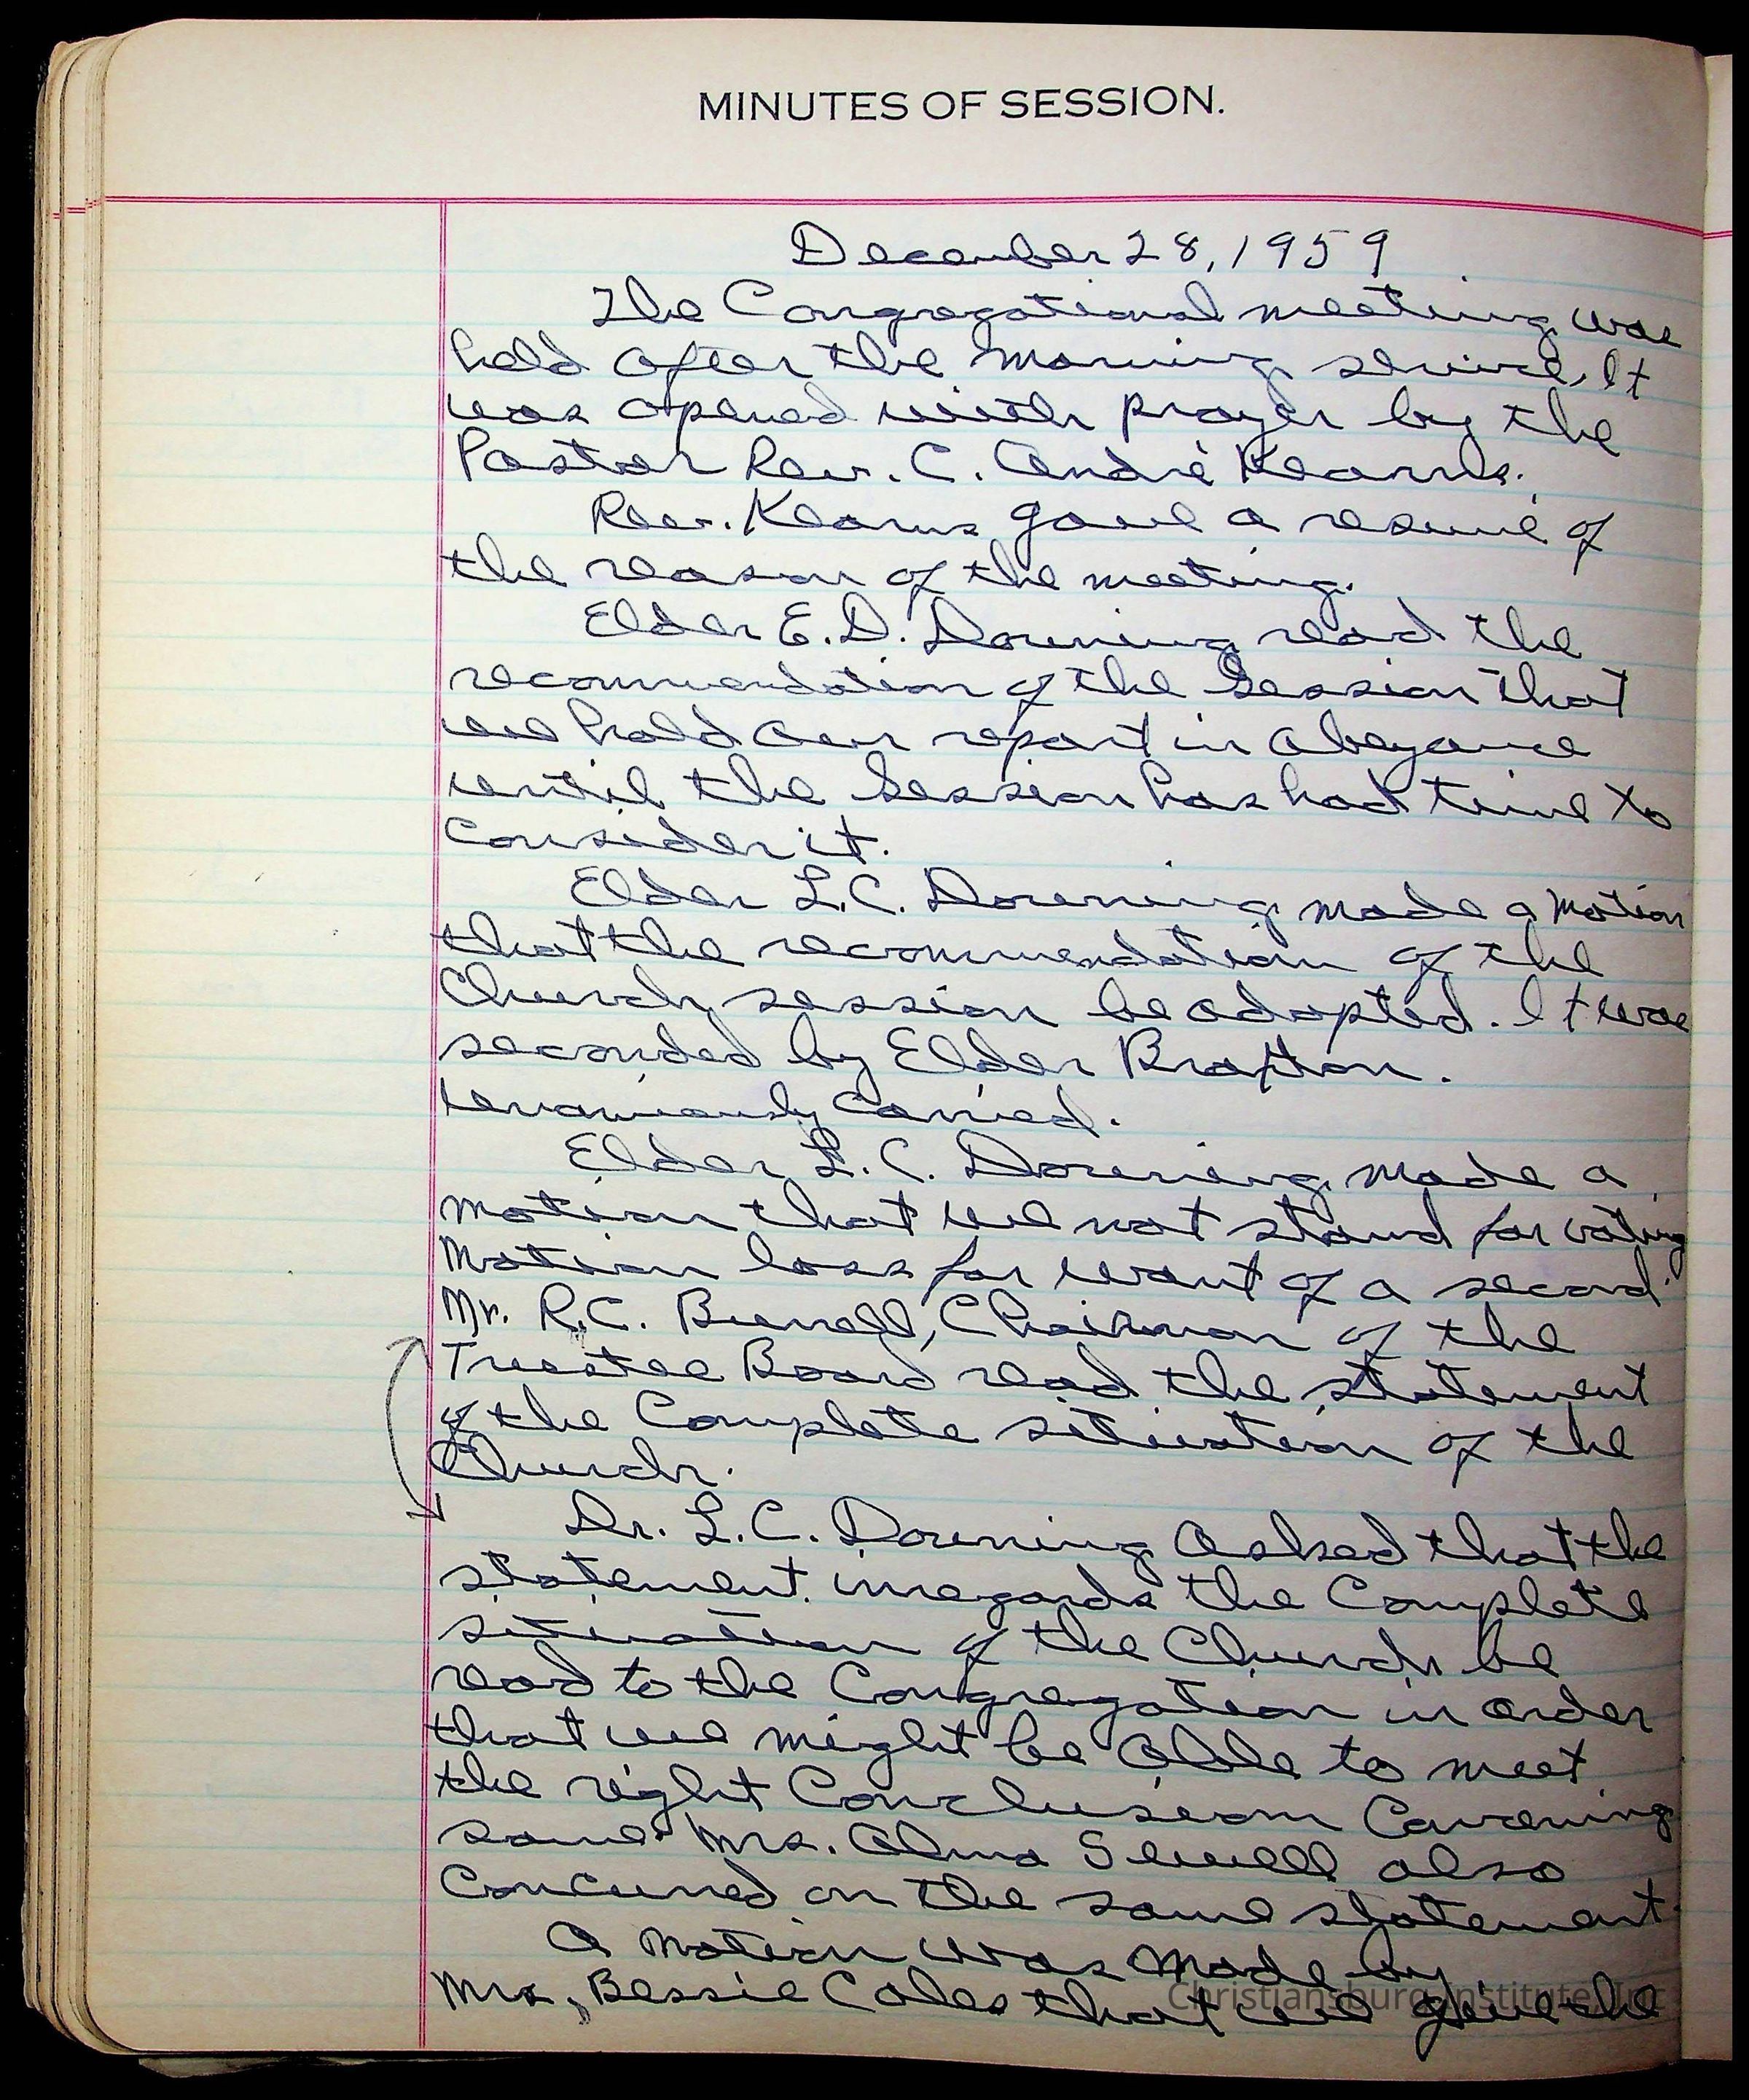 MINUTES OF SESSION.
December 28, 1959
The Congregational meeting was
held after the Morning service, It
was opened with prayer by the
Pastor Rev. C. André Kearns.
Rev. Kearns gave a resumé of
the reason of the meeting.
Elder E. D. Downing read the
recommendation of the Session that
we hold our report in abeyance
until the Session has had time to
consider it.
Elder L.C. Downing made a motion
that the recommendation of the
Church session be adopted. It was
seconded by Elder Braxton.
Carried.
Elder L.C. Downing made a
motion that we not stand for voting
Motion loss for want of a second
Mr. R.C. Chairman of the
Trustee Board read the statement
of the Complete situation of the
Church.
Dr. L.C. Downing asked that the
statement inregards the Complete
situation of the Church be
read to the Congregation in order
that we might be able to meet
the right Conclusion
same. Mrs. Alma Sewell also
Concurred on the same statement.
A motion was made by
Mrs. Bessie Coles that we give the
Christiansburg Institute, Inc